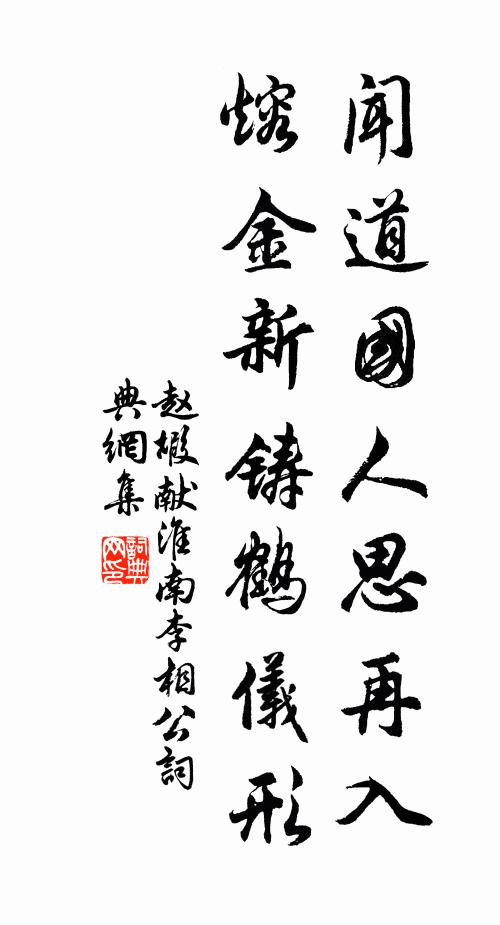 闻道國人思再入
熔金新铸鹤儀形
赵嘏献淮南李相公詞
典網集
詞典
网印